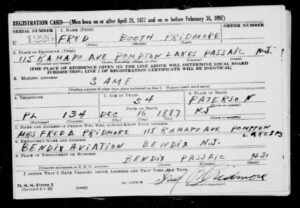 REGISTRATION CARD—(Men born on or after April 28, 1877 and on or before February 16, 1897)
SERIAL NUMBER 1. NAME (Print)
FRED BOOTH PRIDMORE
2. PLACE OF RESIDENCE (Print)
115 RAMAPO AVE POMPTON LAKES PASSAIC N.J.
[THE PLACE OF RESIDENCE GIVEN ON THE LINE ABOVE WILL DETERMINE LOCAL BOARD
JURISDICTION; LINE 2 OF REGISTRATION CERTIFICATE WILL BE IDENTICAL]
3. MAILING ADDRESS
SAME
4. TELEPHONE 5. AGE IN YEARS 6. PLACE OF BIRTH
54 PATERSON
DATE OF BIRTH
PL 134 DEC 16 1887 N.J.
7. NAME AND ADDRESS OF PERSON WHO WILL ALWAYS KNOW YOUR ADDRESS
MRS FREDA PRIDMORE 115 RAMAPO AVE POMPTON LAKES
8. EMPLOYER'S NAME AND ADDRESS
BENDIX AVIATION BENDIX N.J.
9. PLACE OF EMPLOYMENT OR BUSINESS
BENDIX PASSAIC N.J.
I AFFIRM THAT I HAVE VERIFIED ABOVE ANSWERS AND THAT THEY ARE TRUE.
D. S. S. Form 1